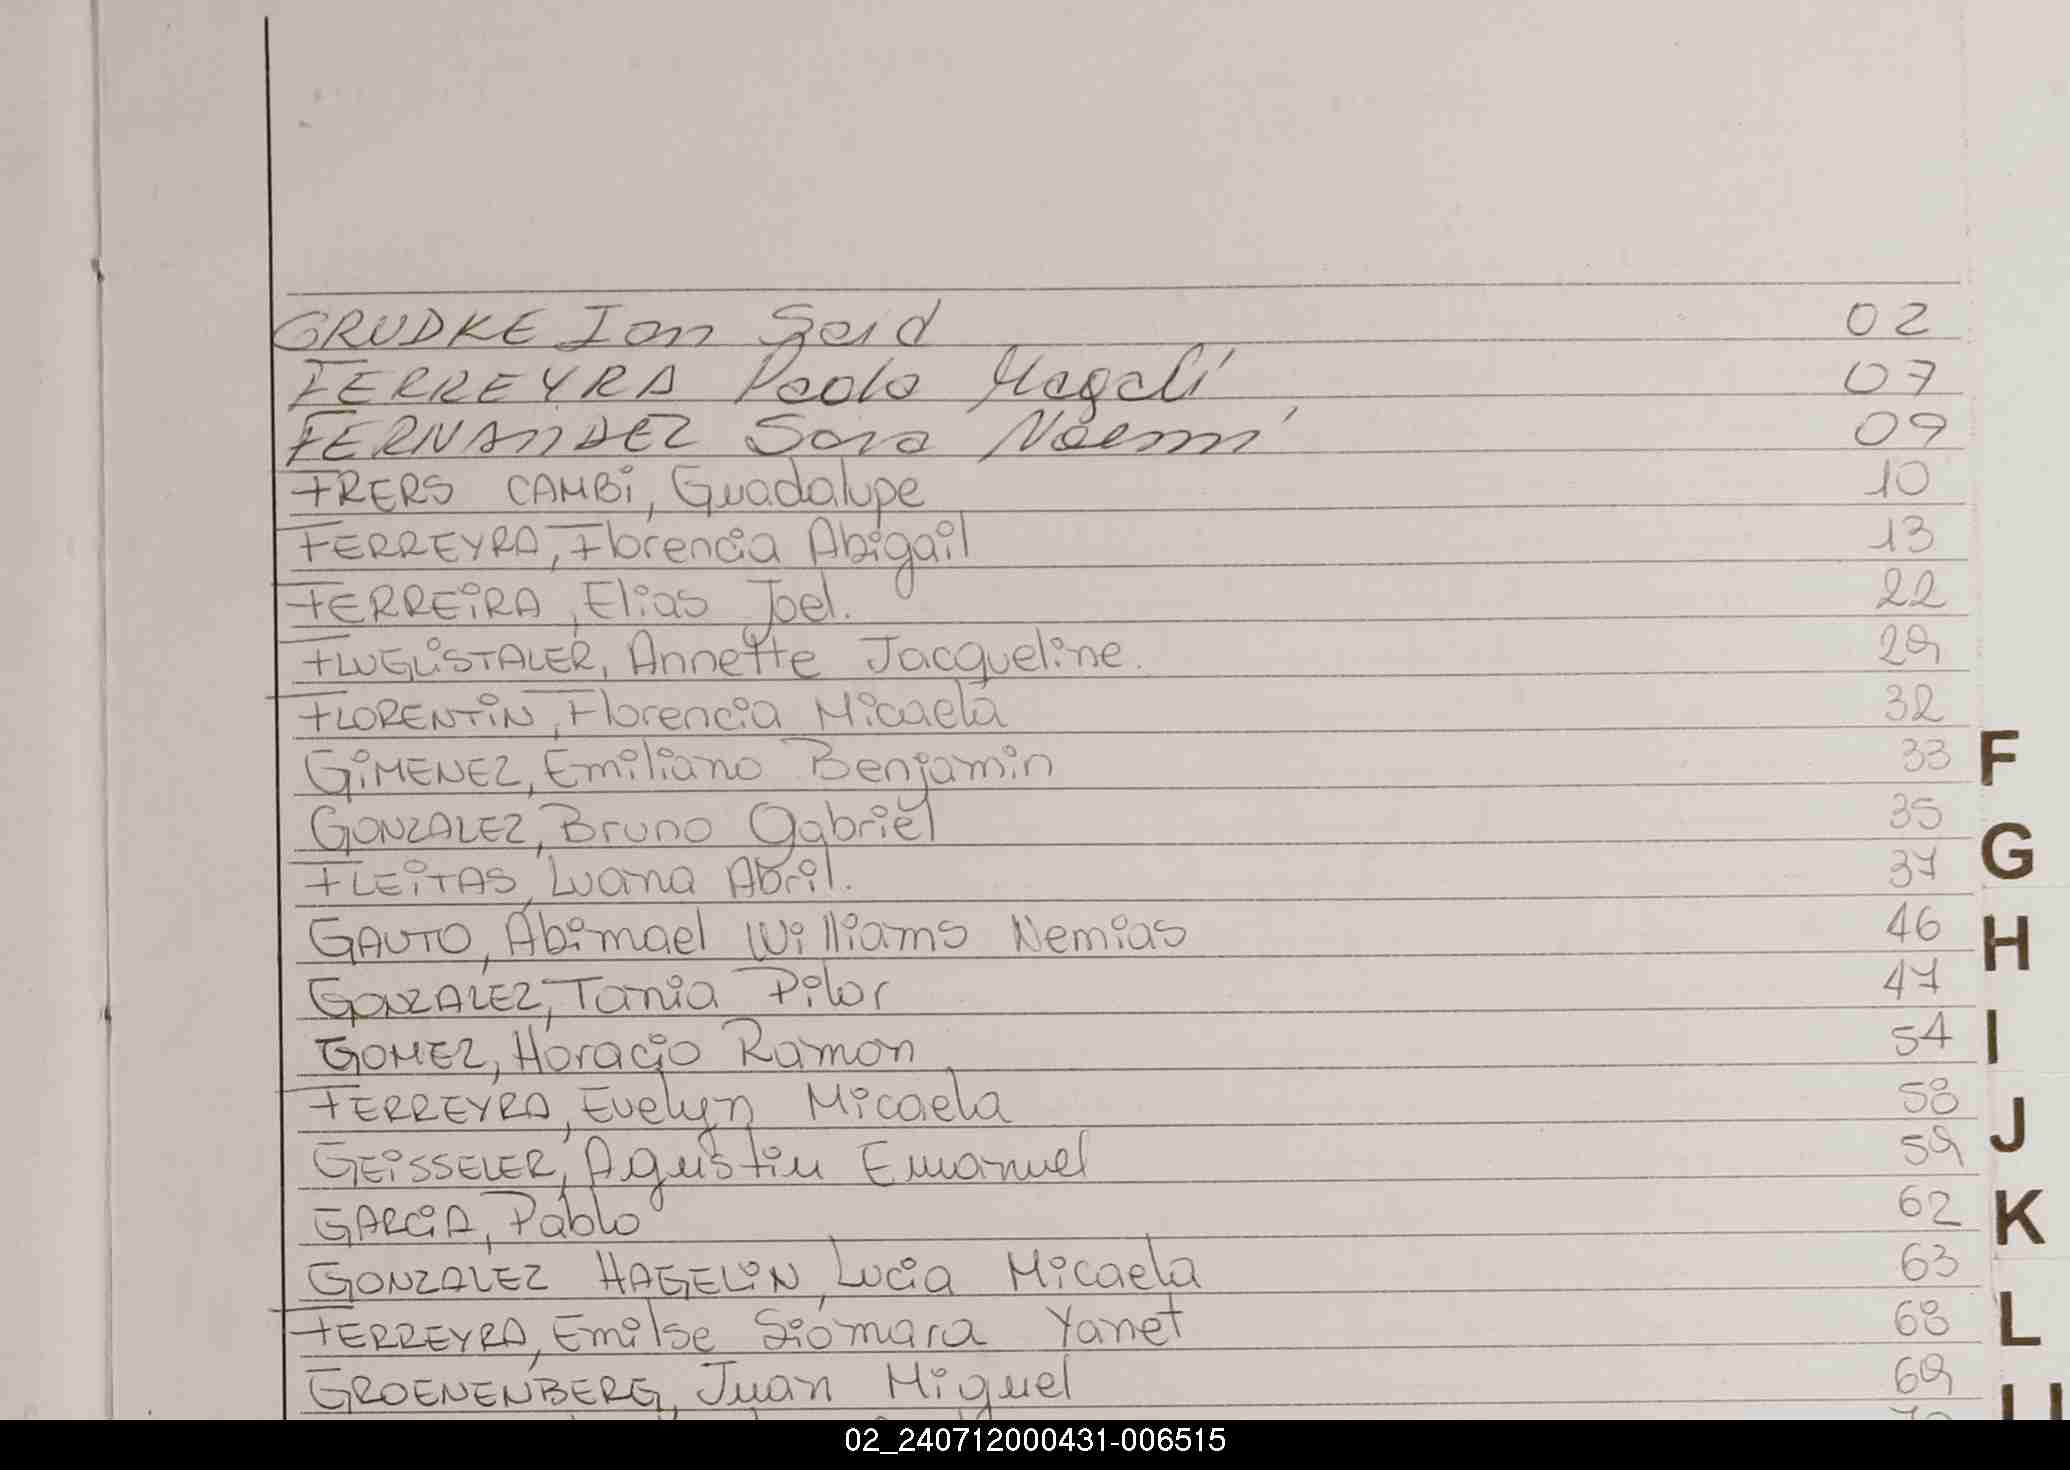 GRUDKE Ion Said 02
FERREYRA Paola Magalí 07
FERNANDEZ Sara Noemí 09
FRERS CAMBi, Guadalupe 10
FERREYRA, Florencia Abigail 13
FERREiRA, Elias Joel. 22
FLUGLiSTALER, Annette Jacqueline. 29
FLORENTiN, Florencia Micaela 32
GiMENEZ, Emiliano Benjamin 33
F
GONZALEZ, Bruno Gabriel 35
G
FLEiTAS, Luana Abril. 37
GAUTO, Abimael Williams Nemias 46
H
GONZALEZ, Tania Pilar 47
GOMEZ, Horacio Ramon 54
I
FERREYRA, Evelyn Micaela 58
J
GEiSSELER, Agustin Emanuel 59
GARCiA, Pablo 62
K
GONZALEZ HAGELiN, Lucia Micaela 63
FERREYRA, Emilse Siomara Yanet 68
L
GROENENBERG, Juan Miguel 69
02_240712000431-006515